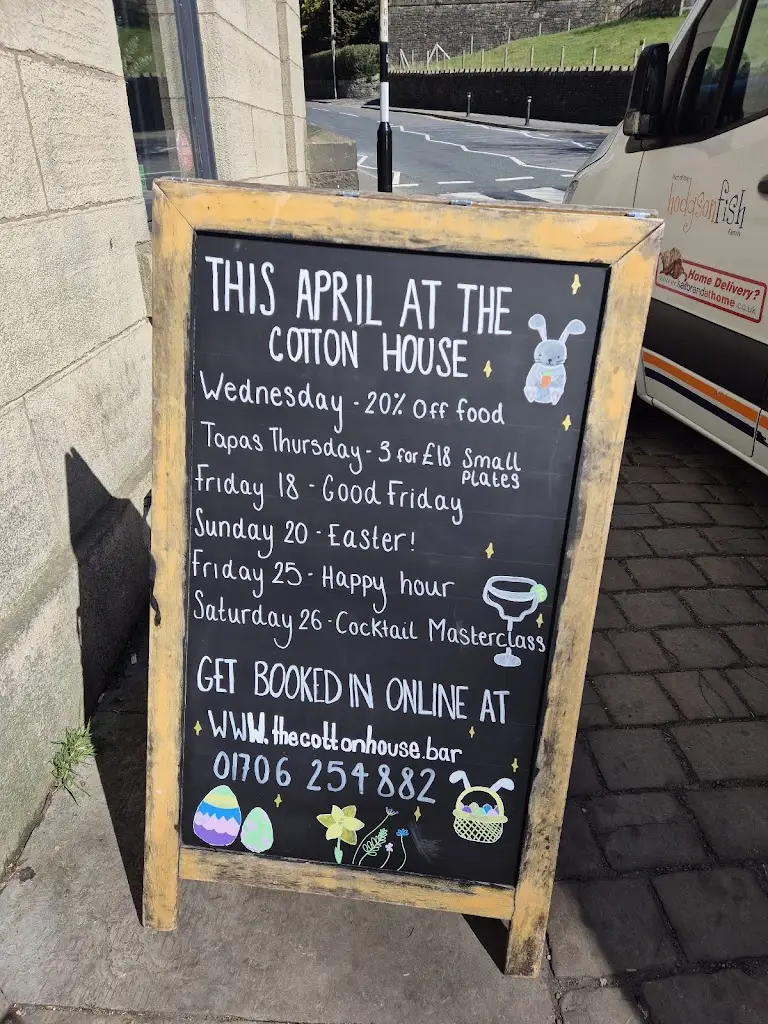 THIS APRIL AT THE
COTTON HOUSE
Wednesday - 20% Off food
Tapas Thursday - 3 for £18 Small
Plates
Friday 18 - Good Friday
Sunday 20 - Easter!
Friday 25 - Happy hour
Saturday 26 - Cocktail Masterclass
GET BOOKED IN ONLINE AT
WWW.thecottonhouse.bar
01706 254882
Part of the
hodgsonfish
family
Home Delivery?
athome.co.uk